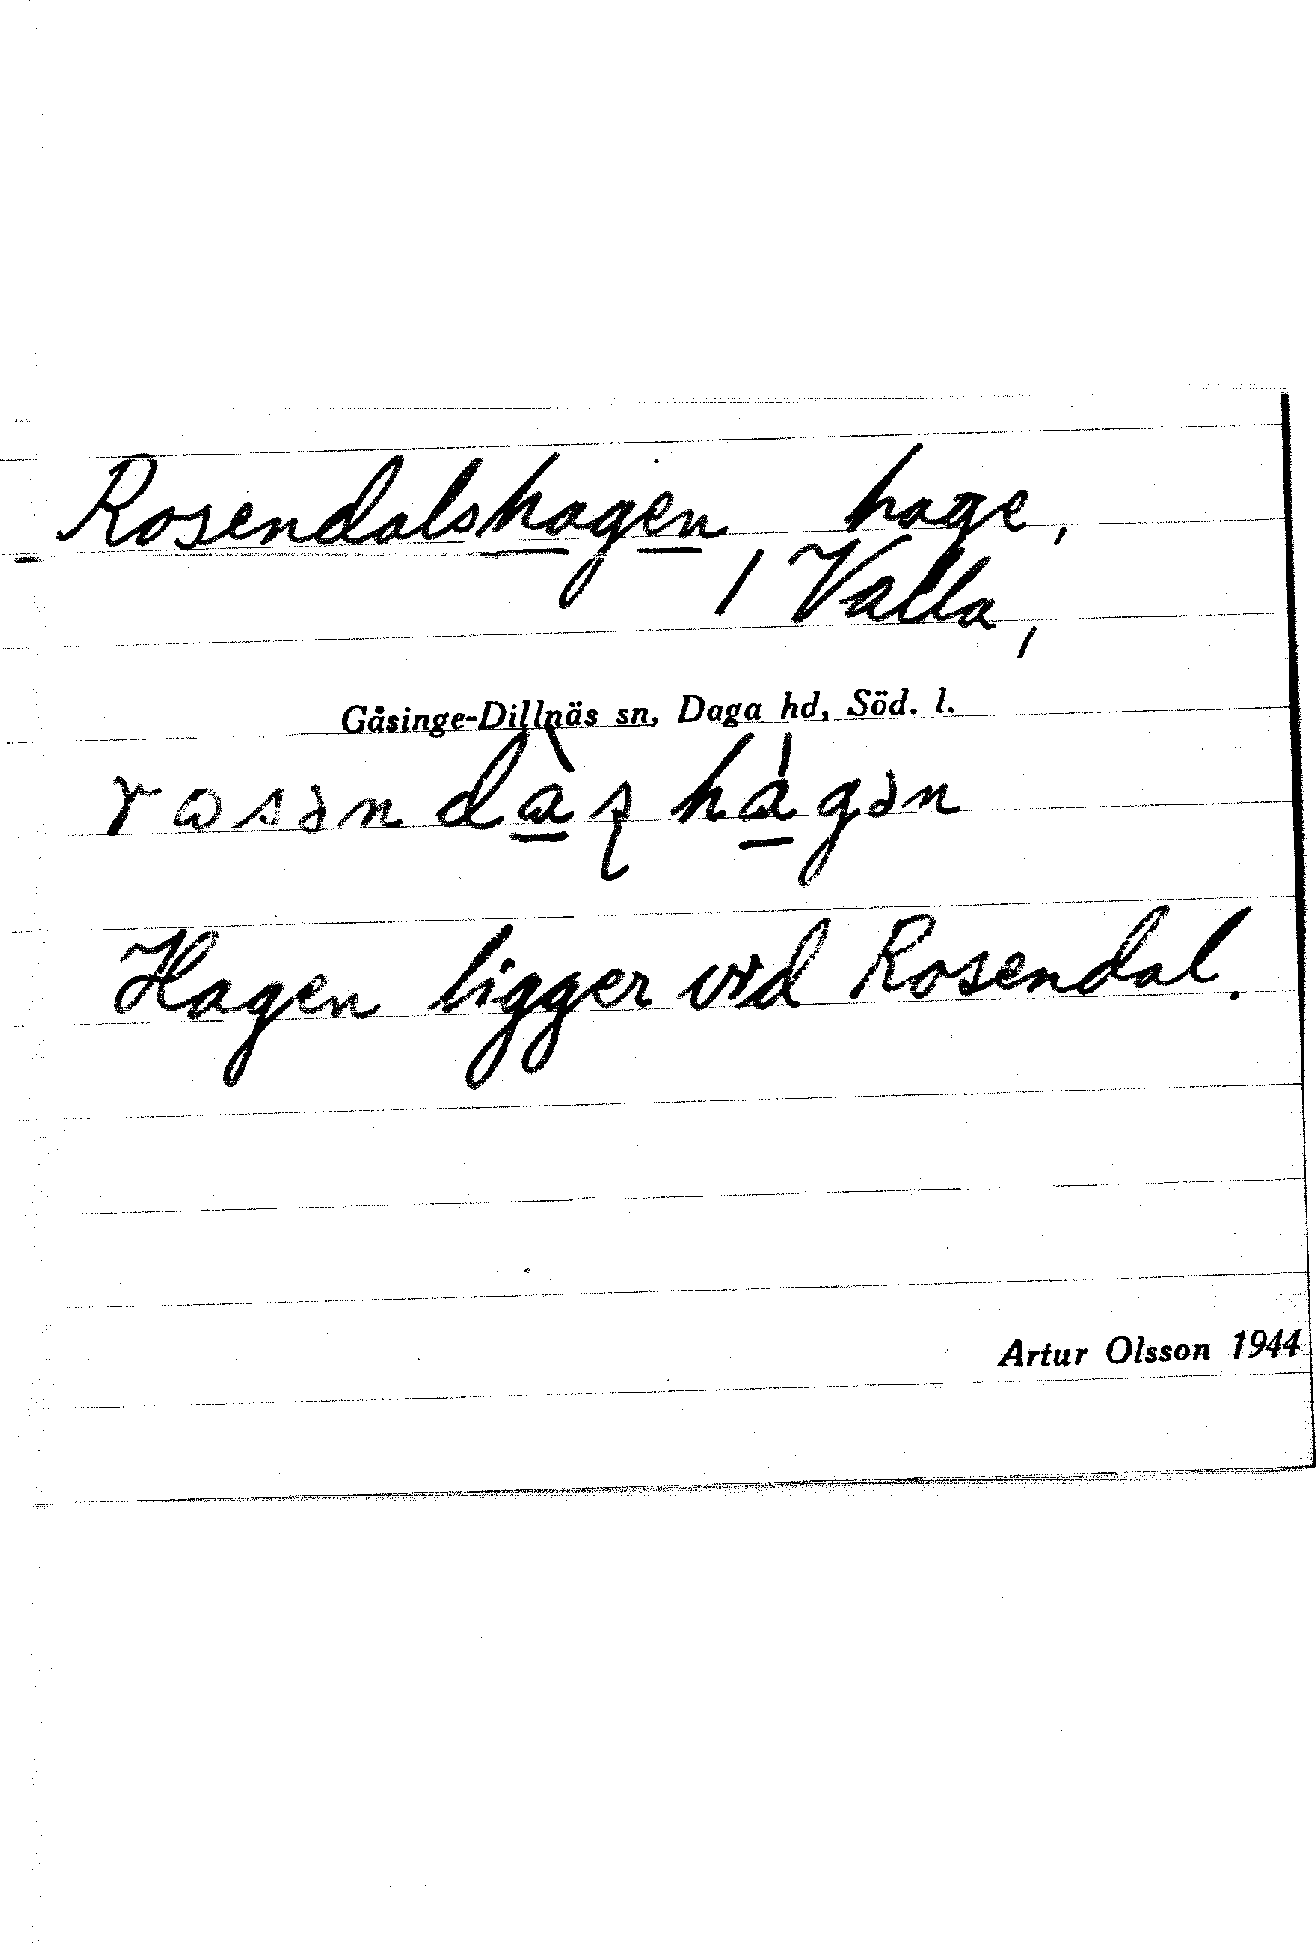 Rosendalshagen, hage,
1 Valla,
Gåsinge-Dillnäs sn, Daga hd, Söd. l.
rωsəndàʂhágən
Hagen ligger vid Rosendal.
Artur Olsson 1944